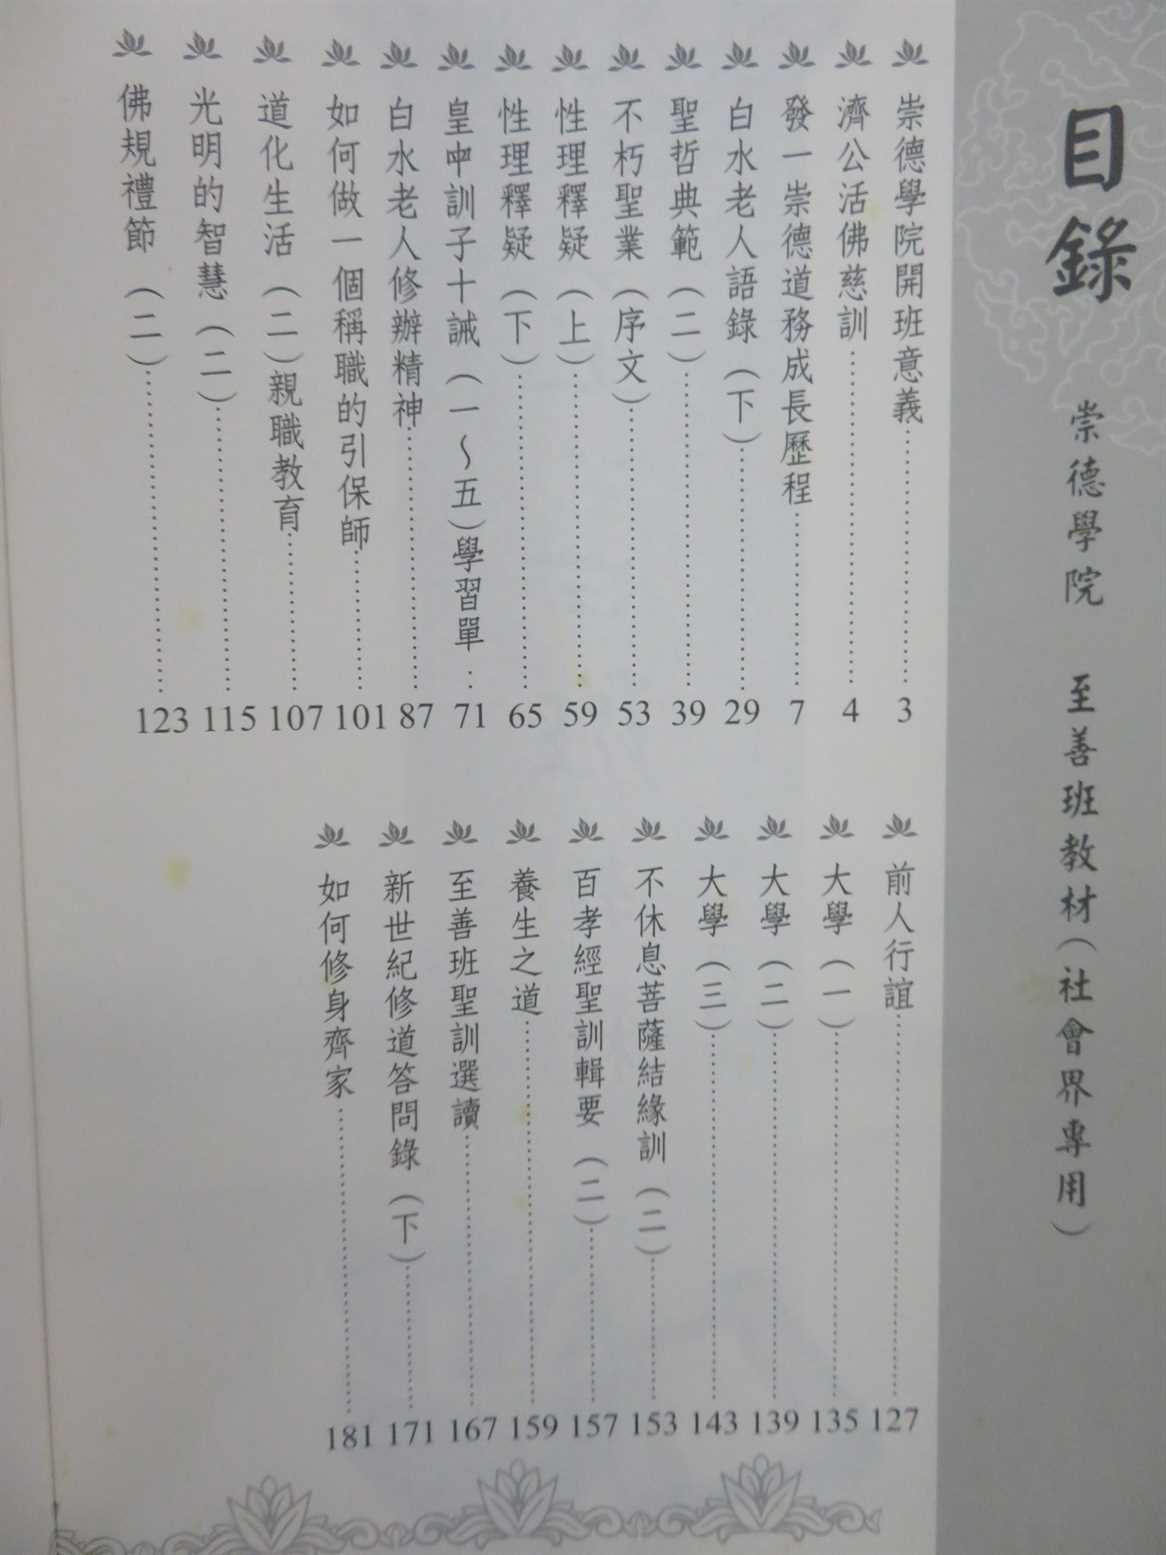 目錄 崇德學院 至善班教材(社會界專用)
崇德學院開班意義………3
濟公活佛慈訓………4
發一崇德道務成長歷程………7
白水老人語錄(下)………29
聖哲典範(二)………39
不朽聖業(序文)………53
性理釋疑(上)………59
性理釋疑(下)………65
皇申訓子十誡(一~五)學習單…71
白水老人修辦精神………87
如何做一個稱職的引保師………101
道化生活(二)親職教育………107
光明的智慧(二)………115
佛規禮節(二)………123
前人行誼………127
大學(一)………135
大學(二)………139
大學(三)………143
不休息菩薩結緣訓(二)………153
百孝經聖訓輯要(二)………157
養生之道………159
至善班聖訓選讀………167
新世紀修道答問錄(下)………171
如何修身齊家………181